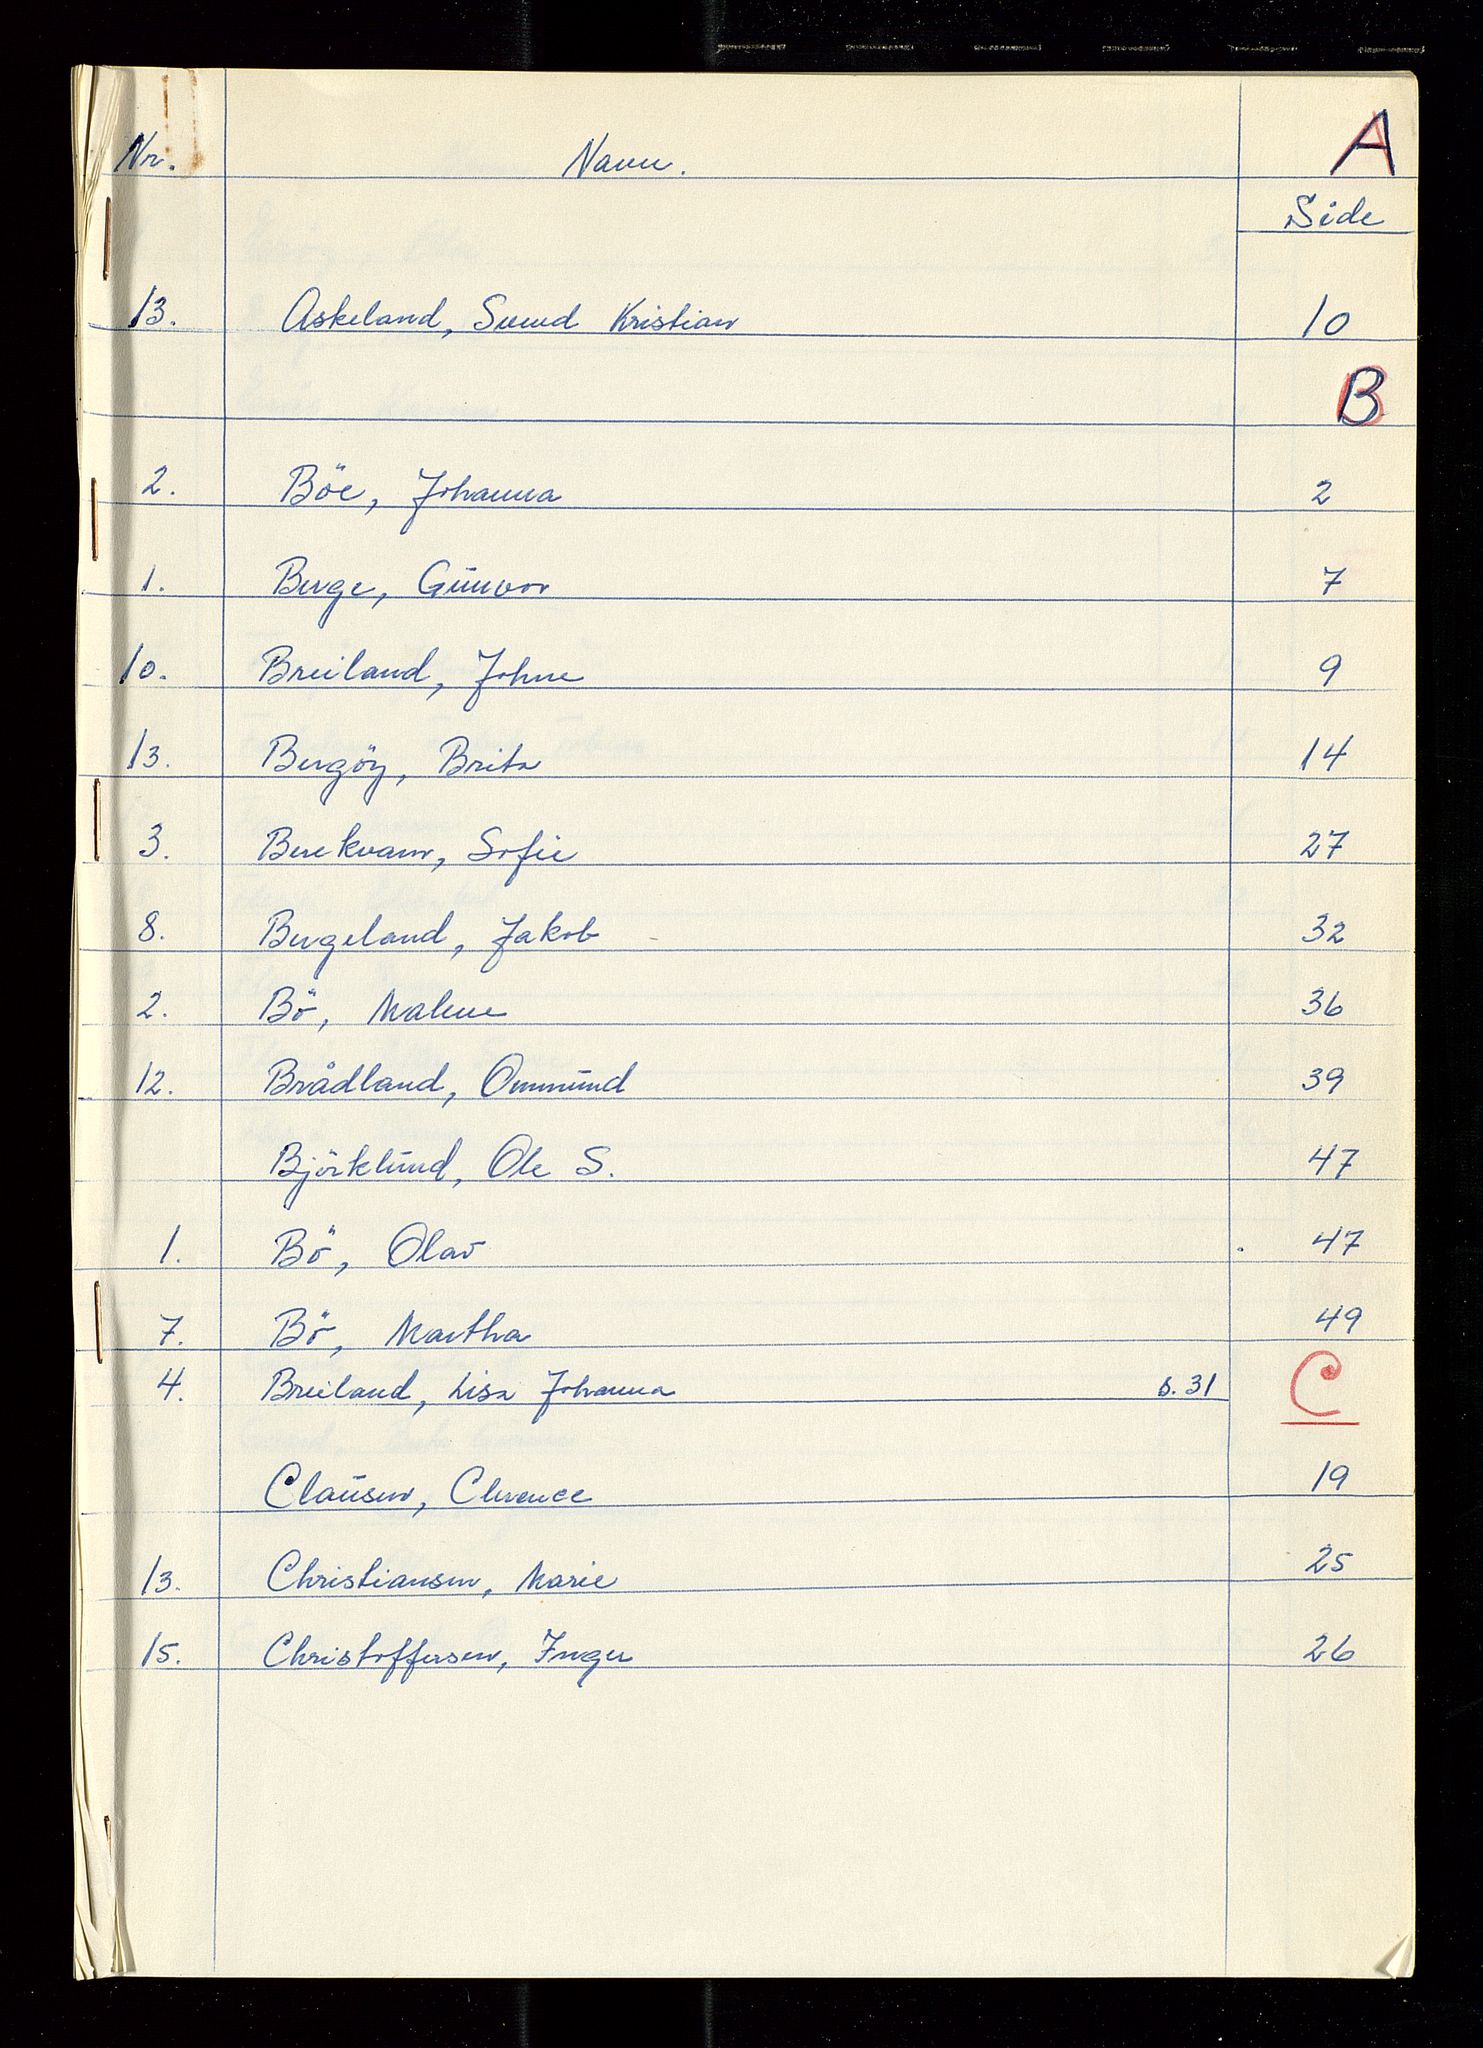 Nr. Navn. A
Side
13. Askeland, Svend Kristian 10
B
2. Böe, Johanna 2
1. Berge, Gunvor 7
10. Breiland, Johne 9
13. Bergöy, Brita 14
3. Berekvam, Sofie 27
8. Bergeland, Jakob 32
2. Bö, Malene 36
12. Brådland, Ommund 39
Björklund, Ole S. 47
1. Bö, Olav 47
7. Bö, Martha 49
4. Breiland, Lisa Johanna s. 31
C
Clausen, Clerence 19
13. Christiansen, Marie 25
15. Christoffersen, Inger 26